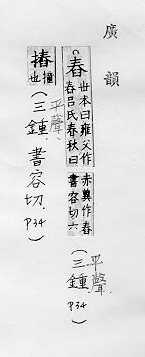 廣韻
舂
世本曰雍父作
舂呂氏春秋曰
赤冀作舂
書容切六
平聲.
(三鍾
P34)
摏
撞
也
平聲.
(三鍾.書容切.
P34)